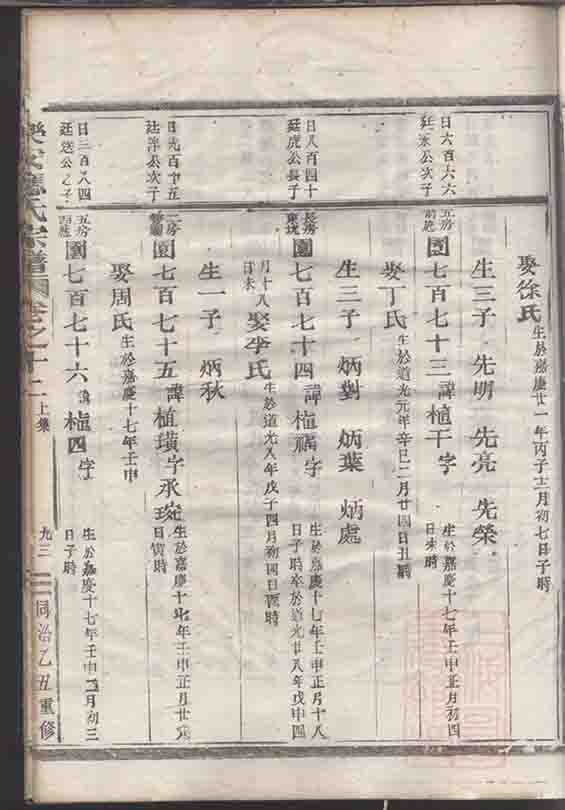 娶徐氏 生於嘉慶廿一年丙子十二月初七日子時
生三子 先明 先亮 先榮
日六百六六
廷永公次子
五房
園七百七十三 諱植干 字
生於嘉慶十七年壬申正月初四
日未時
娶丁氏 生於道光元年辛巳二月廿四日丑時
生三子 炳對 炳葉 炳處
日八百四十
廷虎公長子
長房
園七百七十四 諱植福 字
生於嘉慶十七年壬申正月十八
日子時卒於道光廿八年戊申四
月十八
日未
娶李氏 生於道光八年戊子四月初四日酉時
生一子 炳秋
日九百十五
廷洋公次子
二房
園七百七十五 諱植璜 字承琬
生於嘉慶十七年壬申正月廿六
日寅時
娶周氏 生於嘉慶十七年壬申
日三百八四
廷送公之子
五房
園七百七十六 諱植四 字
生於嘉慶十七年壬申二月初三
日子時
氏宗譜 卷之十二 上集 九三 同治乙丑重修